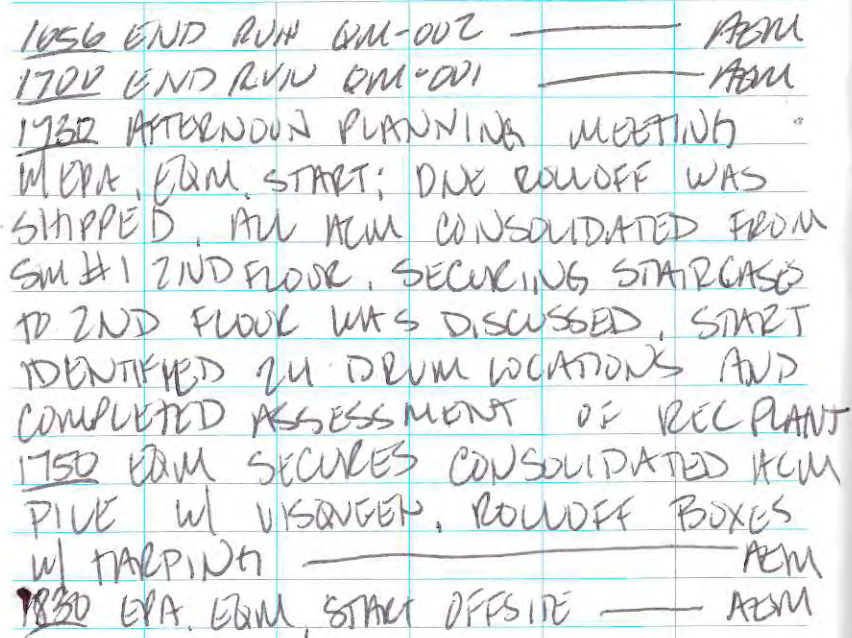 1656 END RUN QM-002 — AEM
1700 END RUN QM-001 — AEM
1730 AFTERNOON PLANNING MEETING
W/ EPA, EQM, START; ONE ROLLOFF WAS
SHIPPED, ALL ACM CONSOLIDATED FROM
SM #1 2ND FLOOR, SECURING STAIRCASE
TO 2ND FLOOR WAS DISCUSSED, START
IDENTIFIED 24 DRUM LOCATIONS AND
COMPLETED ASSESSMENT OF REC PLANT
1750 EQM SECURES CONSOLIDATED ACM
PILE W/ VISQUEEN, ROLLOFF BOXES
W/ TARPING — AEM
1830 EPA, EQM, START OFFSITE — AEM